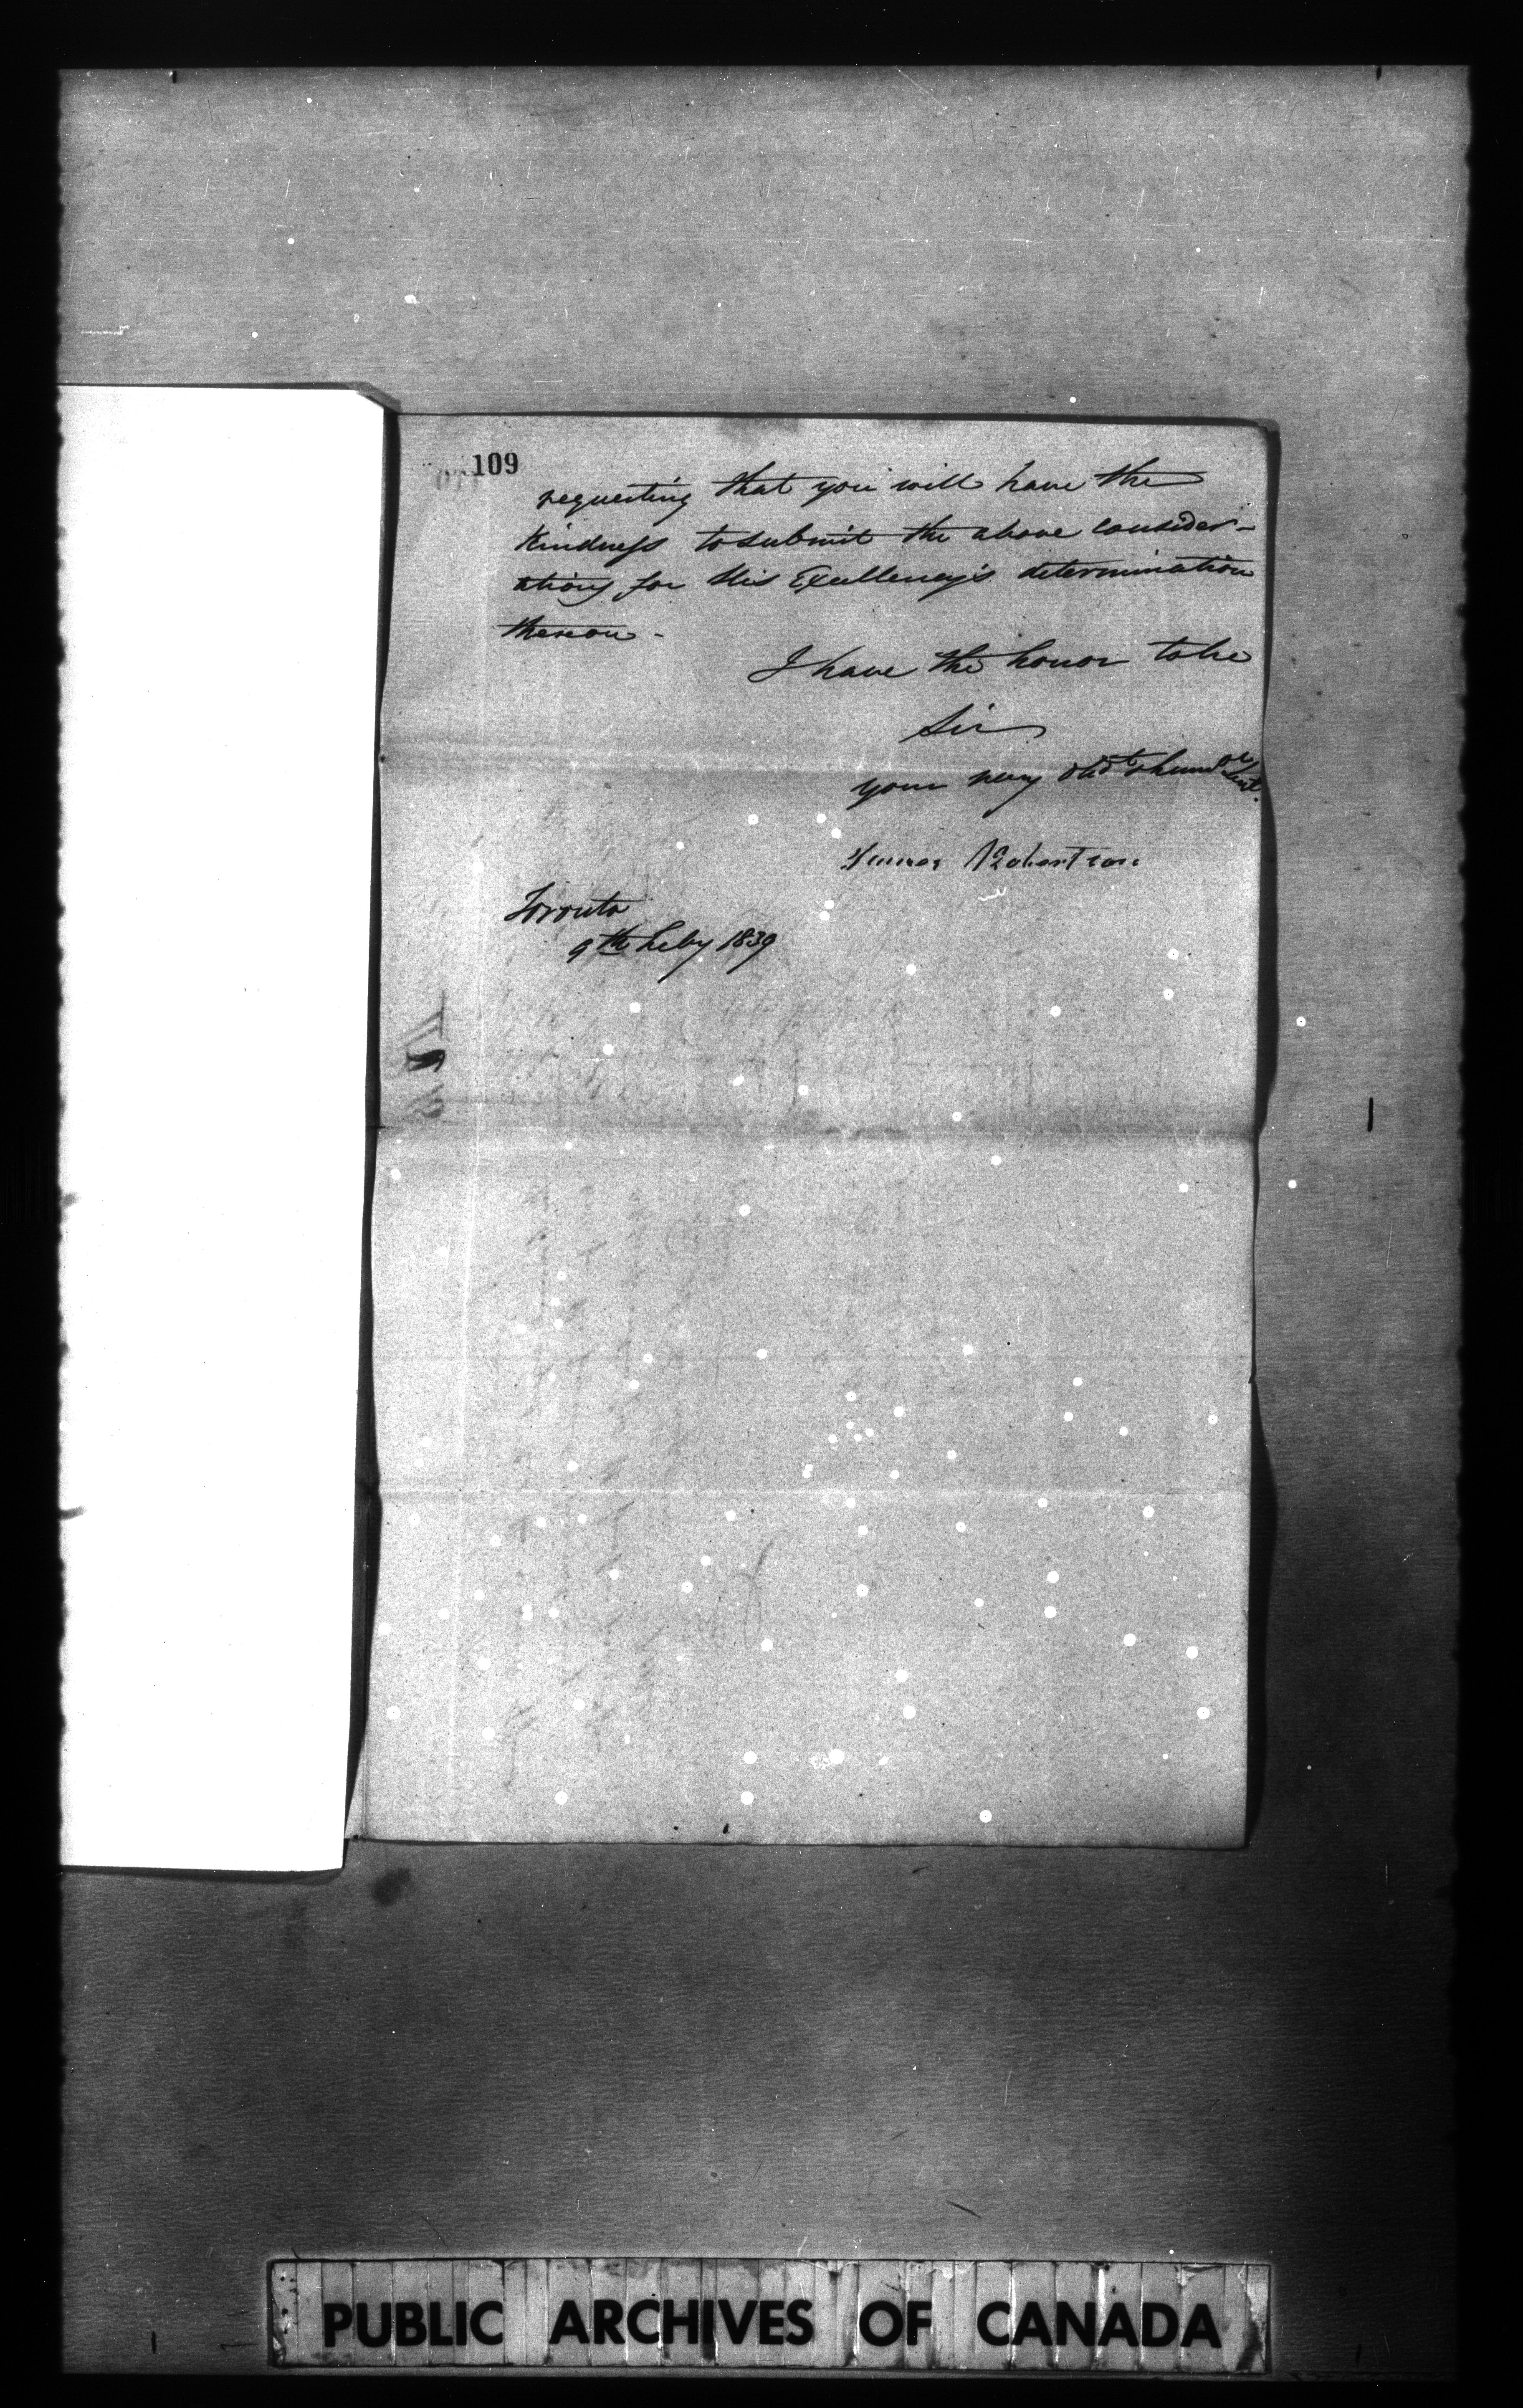 109
requesting that you will have the
Kindness to submit the above consider-
ations for His Excellency's determination
thereon -
I have the honor to be
Sir
your very obdt humble Sert.
James Robertson
Toronto
9th Feby 1839
PUBLIC ARCHIVES OF CANADA